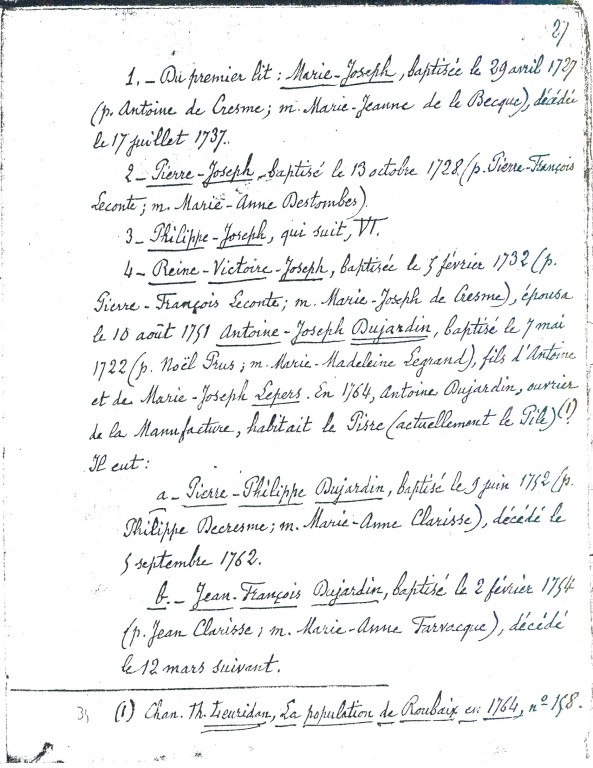 27
1. _ Du premier lit : Marie-Joseph, baptisée le 29 avril 1727
(p. Antoine de Cresme; m. Marie-Jeanne de le Becque), décédée
le 17 juillet 1737.
2 _ Pierre-Joseph, baptisé le 13 octobre 1728. (p. Pierre-François
Leconte; m. Marie-Anne Destombes).
3 _ Philippe-Joseph, qui suit, VI.
4 _ Reine-Victoire-Joseph, baptisée le 5 février 1732 (p.
Pierre-François Leconte; m. Marie-Joseph de Cresme), épousa
le 10 août 1751 Antoine-Joseph Dujardin, baptisé le 7 mai
1722 (p. Noël Prus; m. Marie-Madeleine Legrand), fils d'Antoine
et de Marie-Joseph Lepers. En 1764, Antoine Dujardin, ouvrier
de la Manufacture, habitait le Pisre (actuellement le Pile) (1).
Il eut :
a _ Pierre-Philippe Dujardin, baptisé le 9 juin 1752 (p.
Philippe Decresme; m. Marie-Anne Clarisse), décédé le
5 septembre 1762.
b. _ Jean-François Dujardin, baptisé le 2 février 1754
(p. Jean Clarisse; m. Marie-Anne Farvacque), décédé
le 12 mars suivant.
(1) Chan. Th. Leuridan, La population de Roubaix en 1764, n° 158.